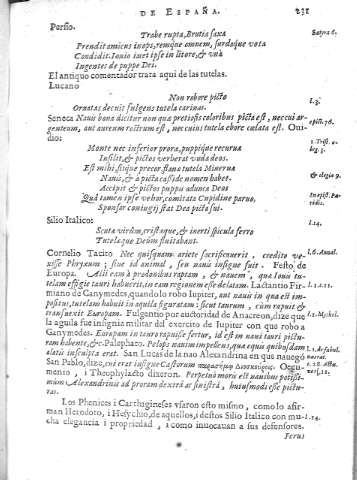 DE ESPAÑA. 231
Persio.
Trabe rupta, Brutia saxa Satyra 6.
Prendit amicus inops, remque omnem, surdaque vota
Condidit Ionio iacet ipse in litore, & unà
Ingentes de puppe Dei.
El antiquo comentador trata aqui de las tutelas.
Lucano
Non robore picto l.3.
Ornatas decuit fulgens tutela carinas.
Seneca Nauis bona dicitur non quæ pretiosis coloribus picta est, nec cui ar- epist.76.
genteum, aut aureum rostrum est, nec cuius tutela ebore cælata est. Oui-
dio:
Monte nec inferior prora, puppique recurua
Insilit, & pictos verberat unda deos.
Est mihi, sitque precor flauæ tutela Mineruæ
Nauis, & à picta casside nomen habet. & elegia 9.
Accipit & pictos puppis adunca Deos
Quà tamen ipse vehor, comitata Cupidine paruo,
Sponsor coniugij stat Dea picta sui.
Silio Italico: l.14.
Scuta virûm, cristæque, & inerti spicula ferro
Tutelaque Deûm fluitabant.
Cornelio Tacito Nec quisquam ariete sacrificauerit, credito ve- l.6. Annal.
xisse Phryxum; siue id animal, seu nauis insigne fuit. Festo de
Europa. Alij eam à prædonibus raptam, & nauem, quæ Iouis tu-
telam effigie tauri habuerit, in eam regionem esse delatam. Lactantio Fir- l.1.c.11.
miano de Ganymedes, quando lo robo Iupiter, aut nauis in qua est im-
positus, tutelam habuit in aquila figuratam: sicut taurum, cum rapuit &
transuexit Europam. Fulgentio por auctoridad de Anacreon, dize que
la aguila fue insignia militar del exercito de Iupiter con que robo a
Ganymedes. Europam in tauro rapuisse fertur, id est in naui tauri pictu-
ram habente, &c. Palephato. Pelops nauim impellens, qua equis quibusdam
alatis insculpta erat. San Lucas de la nao Alexandrina en que nauegó
San Pablo, dize, cui erat insigne Castorum
menio, i Theophylacto dixeron. Perpetuò moris est nauibus potissi-
mùm Alexandrinis ad proram dextra ac sinistra, huiusmodi esse pictu-
ras.
Los Phenices i Carthagineses vsaron esto mismo, como lo afir-
man Herodoto, i Hesychio, de aquellos, i destos Silio Italico con mu- l.14.
cha elegancia i propriedad, i como inuocauan a sus defensores.
Ferus